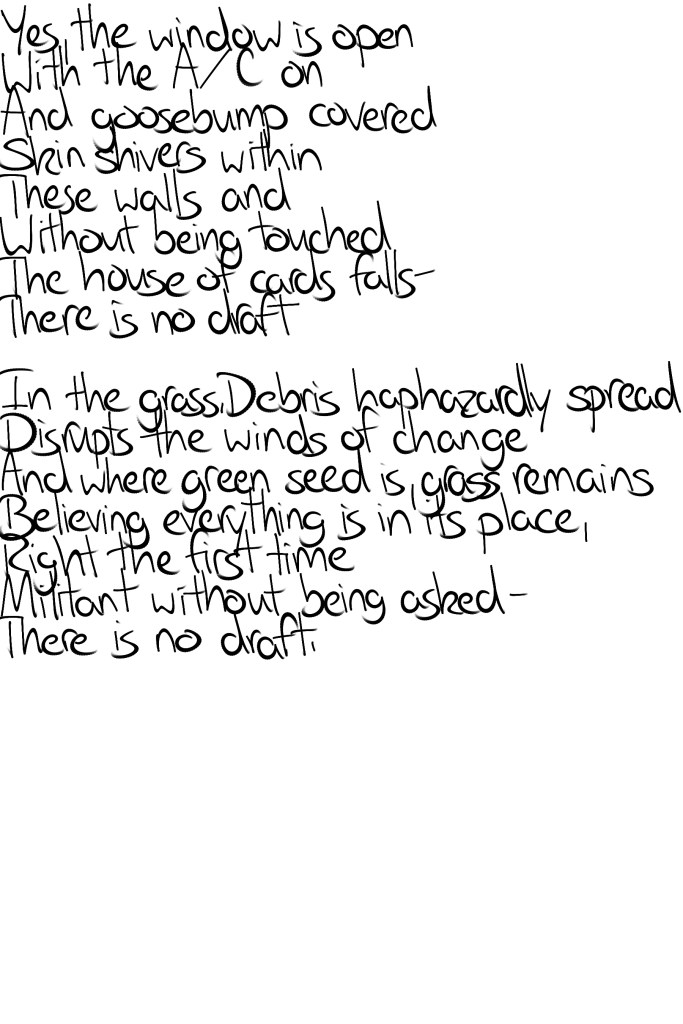 Yes, the window is open
With the A/C on
And goosebump covered
Skin shivers within
These walls and
Without being touched
The house of cards falls-
There is no draft

In the grass, Debris haphazardly spread
Disrupts the winds of change
And where green seed is, grass remains
Believing everything is in its place,
Right the first time
Militant without being asked-
There is no draft.